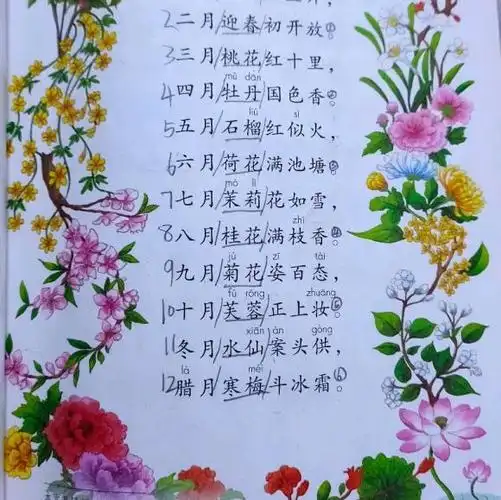 2二月/迎春/初开放①。
3三月/桃花/红十里，
mǔ dān
4四月/牡丹/国色香②。
liú sì
5五月/石榴/红似火，
6六月/荷花/满池塘③。
mò lì
7七月/茉莉/花如雪，
zhī
8八月/桂花/满枝香④。
jú zī tài
9九月/菊花/姿百态，
fú róng zhuāng
10十月/芙蓉/正上妆⑤。
xiān àn gòng
11冬月/水仙/案头供，
là méi
12腊月/寒梅/斗冰霜⑥。